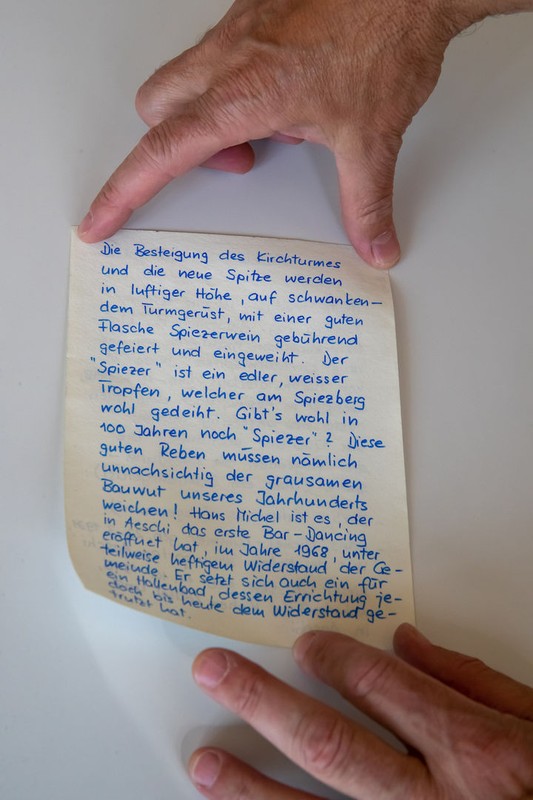 Die Besteigung des Kirchturmes
und die neue Spitze werden
in luftiger Höhe, auf schwanken-
dem Turmgerüst, mit einer guten
Flasche Spiezerwein gebührend
gefeiert und eingeweiht. Der
"Spiezer" ist ein edler, weisser
Tropfen, welcher am Spiezberg
wohl gedeiht. Gibt's wohl in
100 Jahren noch "Spiezer"? Diese
guten Reben müssen nämlich
unnachsichtig der grausamen
Bauwut unseres Jahrhunderts
weichen! Hans Michel ist es, der
in Aeschi das erste Bar-Dancing
eröffnet hat, im Jahre 1968, unter
teilweise heftigem Widerstand der Ge-
meinde. Er setzt sich auch ein für
ein Hallenbad, dessen Errichtung je-
doch bis heute dem Widerstand ge-
trutzt hat.